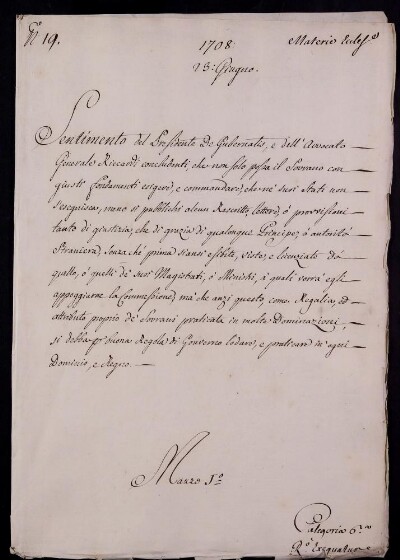 N.º 19.
1708
Materie Eccles.e
23: Giugno.
Sentimento del Presidente De Gubernatis, e dell'Avvocato
Generale Riccardi conchiudenti, che non solo possa il Sovrano con
giusti fondamenti esigere, e commandare, che ne' suoi Stati non
s'eseguisca, nemo si pubblichi alcun Rescritto, lettere, ò provvisioni
tanto di giustizia, che di grazia di qualunque Principe, ò autorità
Straniera, senza che prima siansi esibite, viste, e licenziati da
quello, ò quelli de' suoi Magistrati, ò Ministri, à quali vorrà egli
appoggiarne la Commessione, mà che anzi questo, come Regalia, ed
attributo proprio de' Sovrani praticata in molte Dominazioni,
si debba p. buona Regola di Governo lodare, e praticare in ogni
Dominio, e Regno.
Mazzo 1.º
Categoria 6.ta
R.º Exequatur